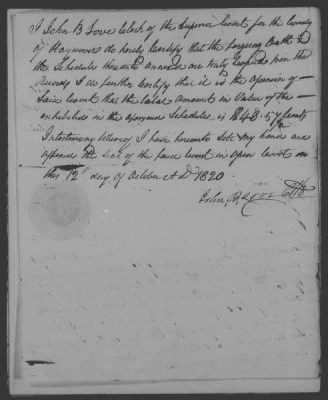 I John B Love Clerk of the Superior Court for the County
of Haywood do hereby Certify that the foregoing Oath &
the Schedule thereto annexed are truly Copied from the
records I do further Certify that it is the opinion of
Said Court that the total amount in Value of the
exhibited in the aforesaid Schedule is $48.57 Cents
In testimony whereof I have hereunto Set my hand and
affixed the seal of the said Court in open Court on
this 12th day of October A D 1820
John B Love Clk